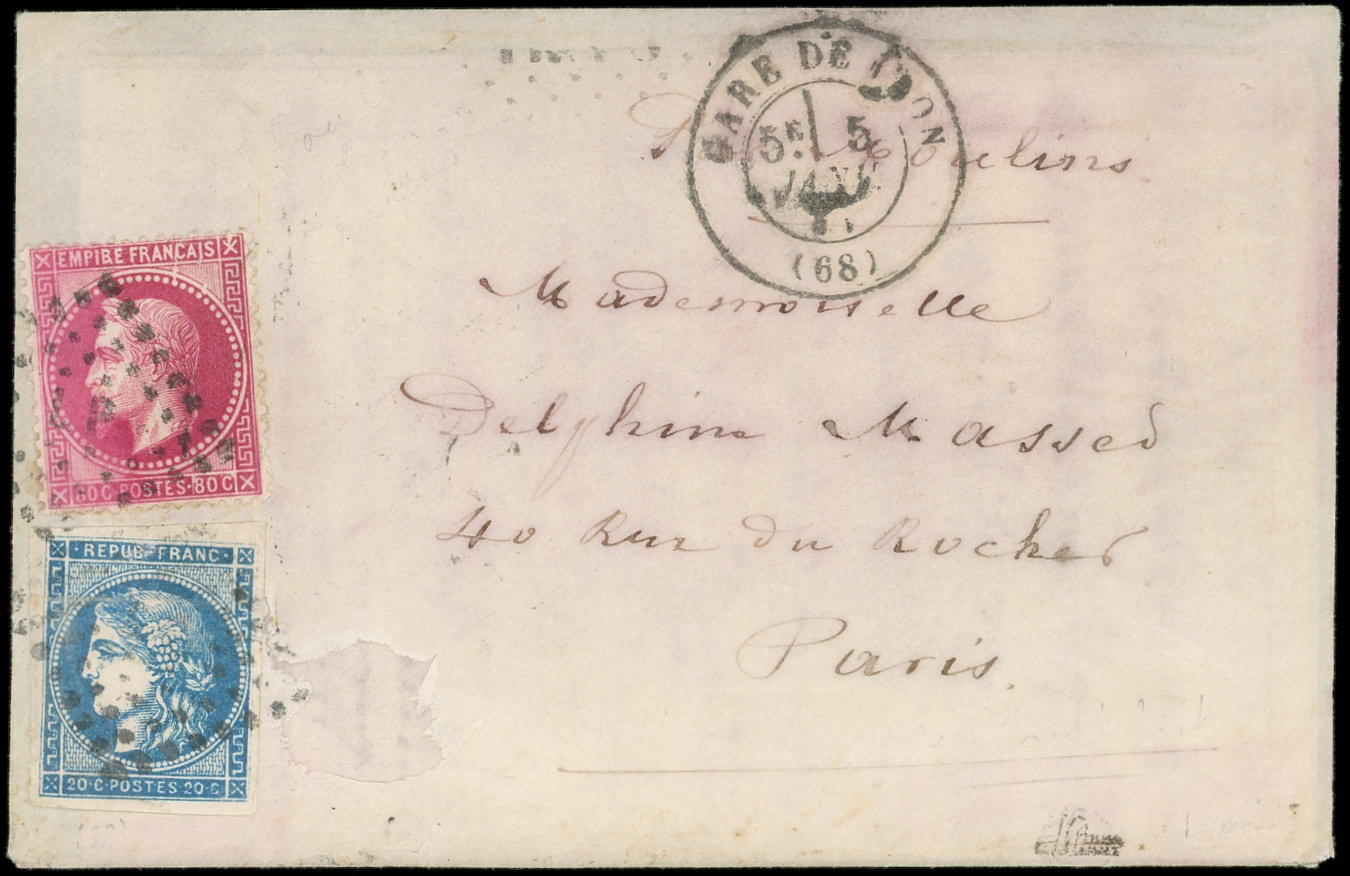 GARE DE LYON
5E 5
JANV.
(68)
Moulins
Mademoiselle
Delphine Massed
40 Rue du Rocher
Paris.
EMPIRE FRANÇAIS
80 C·POSTES·80 C
REPUB·FRANC·
20·C·POSTES·20·C